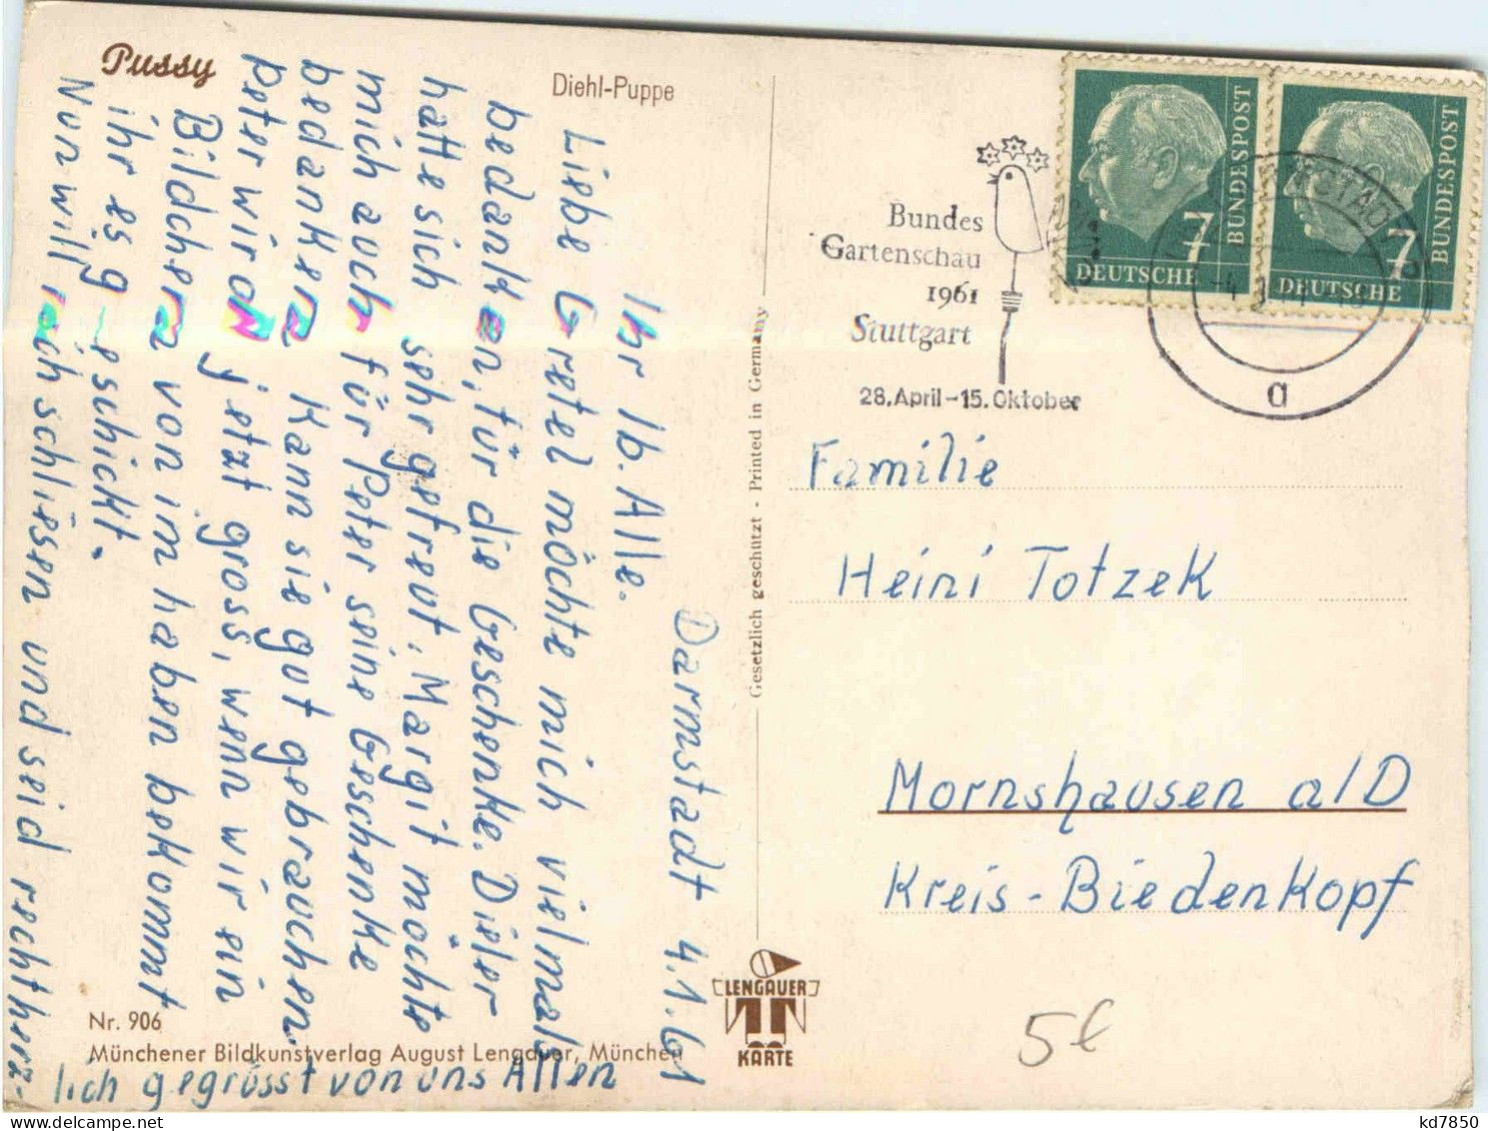 Pussy
Diehl-Puppe
Darmstadt 4.1.61
Ihr lb. Alle.
Liebe Gretel möchte mich vielmals
bedanken, für die Geschenke. Dieler
hatte sich sehr gefreut. Margit möchte
mich auch für Peter seine Geschenke
bedanken Kann sie gut gebrauchen.
Peter wird jetzt gross, wenn wir ein
Bildchen von im haben bekommt
ihr es geschickt.
Nun will ich schliesen und seid recht herz-
lich gegrüsst von uns Allen
Nr. 906
Münchener Bildkunstverlag August Lengauer, München
Gesetzlich geschützt - Printed in Germany
LENGAUER
KARTE
Bundes
Gartenschau
1961
Stuttgart
28. April - 15. Oktober
7
DEUTSCHE
BUNDESPOST
7
DEUTSCHE
BUNDESPOST
a
Familie
Heini Totzek
Mornshausen a/D
Kreis - Biedenkopf
kd7850